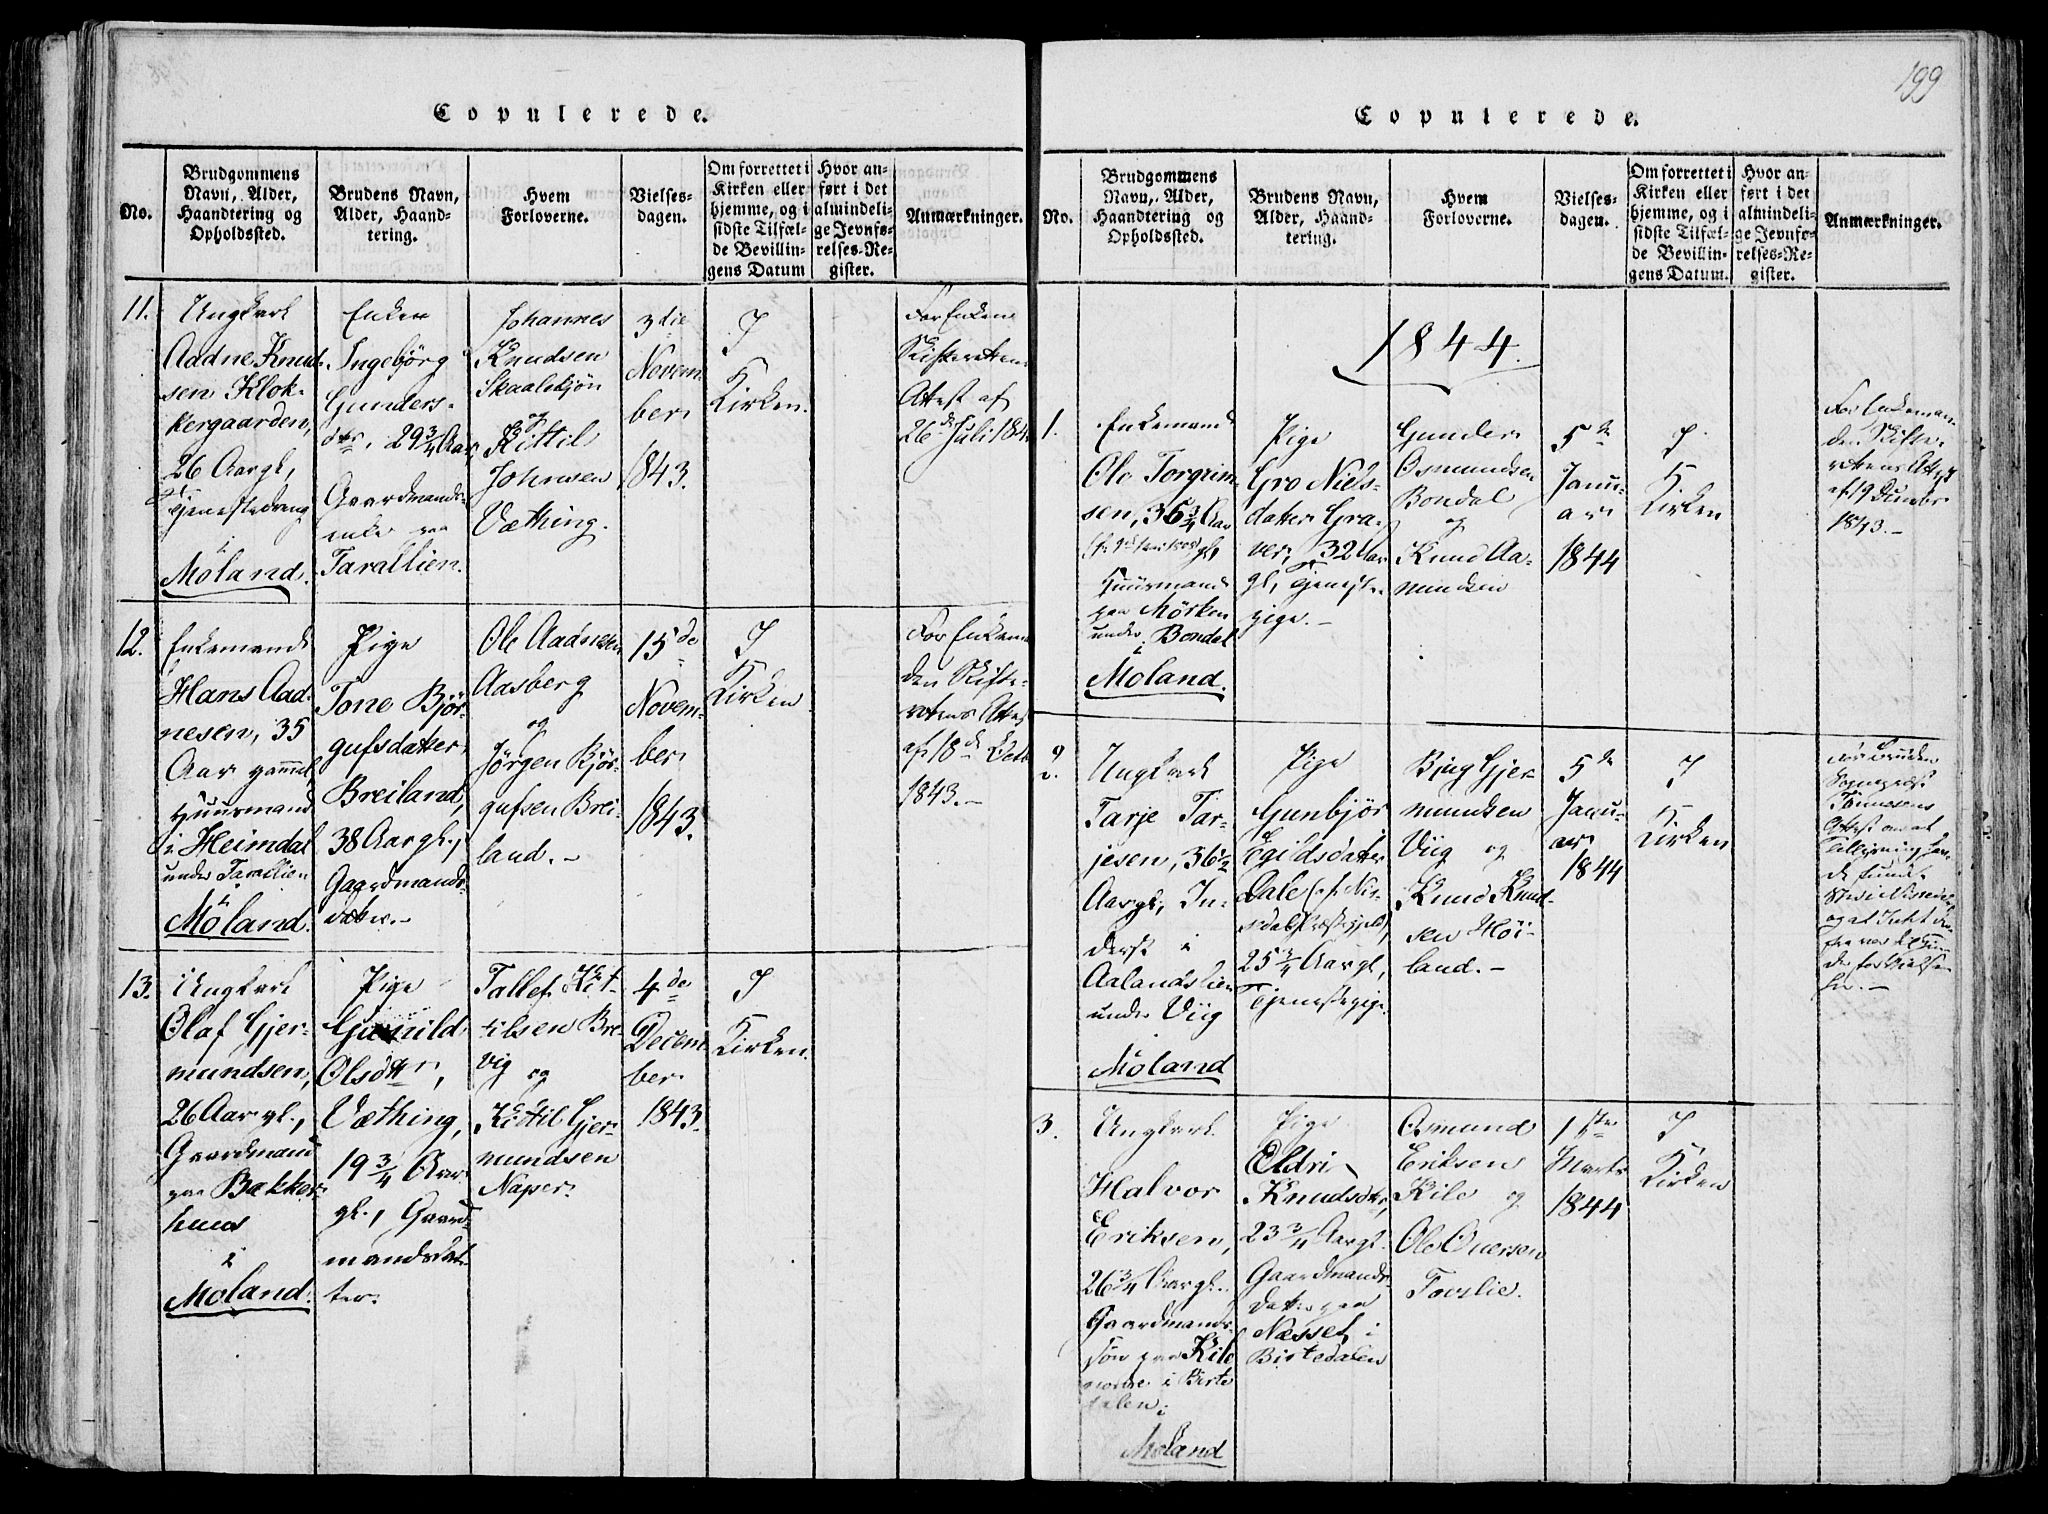 199
Copulerede.
No.
Brudgommens
Navn, Alder,
Haandtering og
Opholdssted.
Brudens Navn,
Alder, Haand-
tering.
Hvem
Forloverne.
Vielses-
dagen.
Om forrettet i
Kirken eller
hjemme, og i
sidste Tilfæl-
de Bevillin-
gens Datum
Hvor an-
ført i det
almindeli-
ge Jevnfø-
relses-Re-
gister.
Anmærkninger.
11.
Ungkarl
Aadne Knud-
sen Klok-
kergaarden,
26 Aar gl,
Tjenestedreng
i
Moland.
Enken
Ingebjörg
Gunders-
dtr, 29 3/4 Aar,
Gaardmands-
enke paa
Tarallien.
Johannes
Knudsen
Skaaletjön
og
Kittil
Johnsen
Væthing.
3die
Novem-
ber
1843.
I
Kirken.
For Enken
Skifterettens
Attest af
26de Juli 184
12.
Enkemand
Hans Aad-
nesen, 35
Aar gammel,
Huusmand
i Heimdal
under Tarallien
i
Moland.
Pige
Tone Björ-
gufsdatter
Breiland,
38 Aar gl.,
Gaardmands-
datter.-
Ole Aadnesen
Aasberg
og
Jörgen Björ-
gufsen Brei-
land.-
15de
Novem-
ber
1843.
I
Kirken
For Enkeman-
den Skifte-
rettens Attest
af 18de Octb
1843.-
13.
Ungkarl
Olaf Gjer-
mundsen,
26 Aar gl.,
Gaardmand
paa Bakke-
huus
i
Moland.
Pige
Gunild
Olsdtr,
Væthing,
19 3/4 Aar
gl., Gaard-
mandsdat-
ter.
Tallef Kit-
tilsen Bre-
vig og
Kittil Gjer-
mundsen
Naper.
4de
Decem-
ber
1843.
I
Kirken.
Copulerede.
No.
Brudgommens
Navn, Alder,
Haandtering og
Opholdssted.
Brudens Navn,
Alder, Haand-
tering.
Hvem
Forloverne.
Vielses-
dagen.
Om forrettet i
Kirken eller
hjemme, og i
sidste Tilfæl-
de Bevillin-
gens Datum.
Hvor an-
ført i det
almindeli-
ge Jevnfø-
relses-Re-
gister.
Anmærkninger.
1844.
1.
Enkemand
Ole Torgrim-
sen, 36 3/4 Aar
gl,
Huusmand
paa Mörken
under Bondal
i
Moland.
Pige
Gro Niels-
datter Gra-
ver, 32 Aar
gl, Tjeneste-
pige.-
Gunder
Osmundsen
Bondal
og
Knud Aa-
mundsen
5te
Janu-
ar
1844
I
Kirken
For Enkeman-
den Skifte-
rettens Attest
af 19 Decembr
1843.-
2.
Ungkarl
Tarje Tar-
jesen, 36 1/2
Aar gl, In-
derst i
Aalandslien
under Viig
i
Moland
Pige
Gunbjör
Egildsdatter
Dale (af Nis-
sedals Præstegjeld),
25 3/4 Aar gl,
Tjenestepige.
Bjug Gjer-
mundsen
Viig og
Knud Knud-
sen Höi-
land.-
5de
Janu-
ar
1844
I
Kirken
For Bruden
Sognepræst
Tönnesens
Attest om at
Tillysning hav-
de fundet
Sted i Nissedal,
og at Intet der-
fra var til Hin-
der for Vielsen
3.
Ungkarl
Halvor
Eriksen,
26 3/4 Aar gl.
Gaardmands-
sön paa Kile
nordre i Birte-
dalen i
Moland
Pige
Eldri
Knudsdtr,
23 3/4 Aar gl.
Gaardmands-
datter paa
Næsset i
Birtedalen
Osmund
Eriksen
Kile og
Ole Oversen
Foerlie.
1ste
Marts
1844
I
Kirken